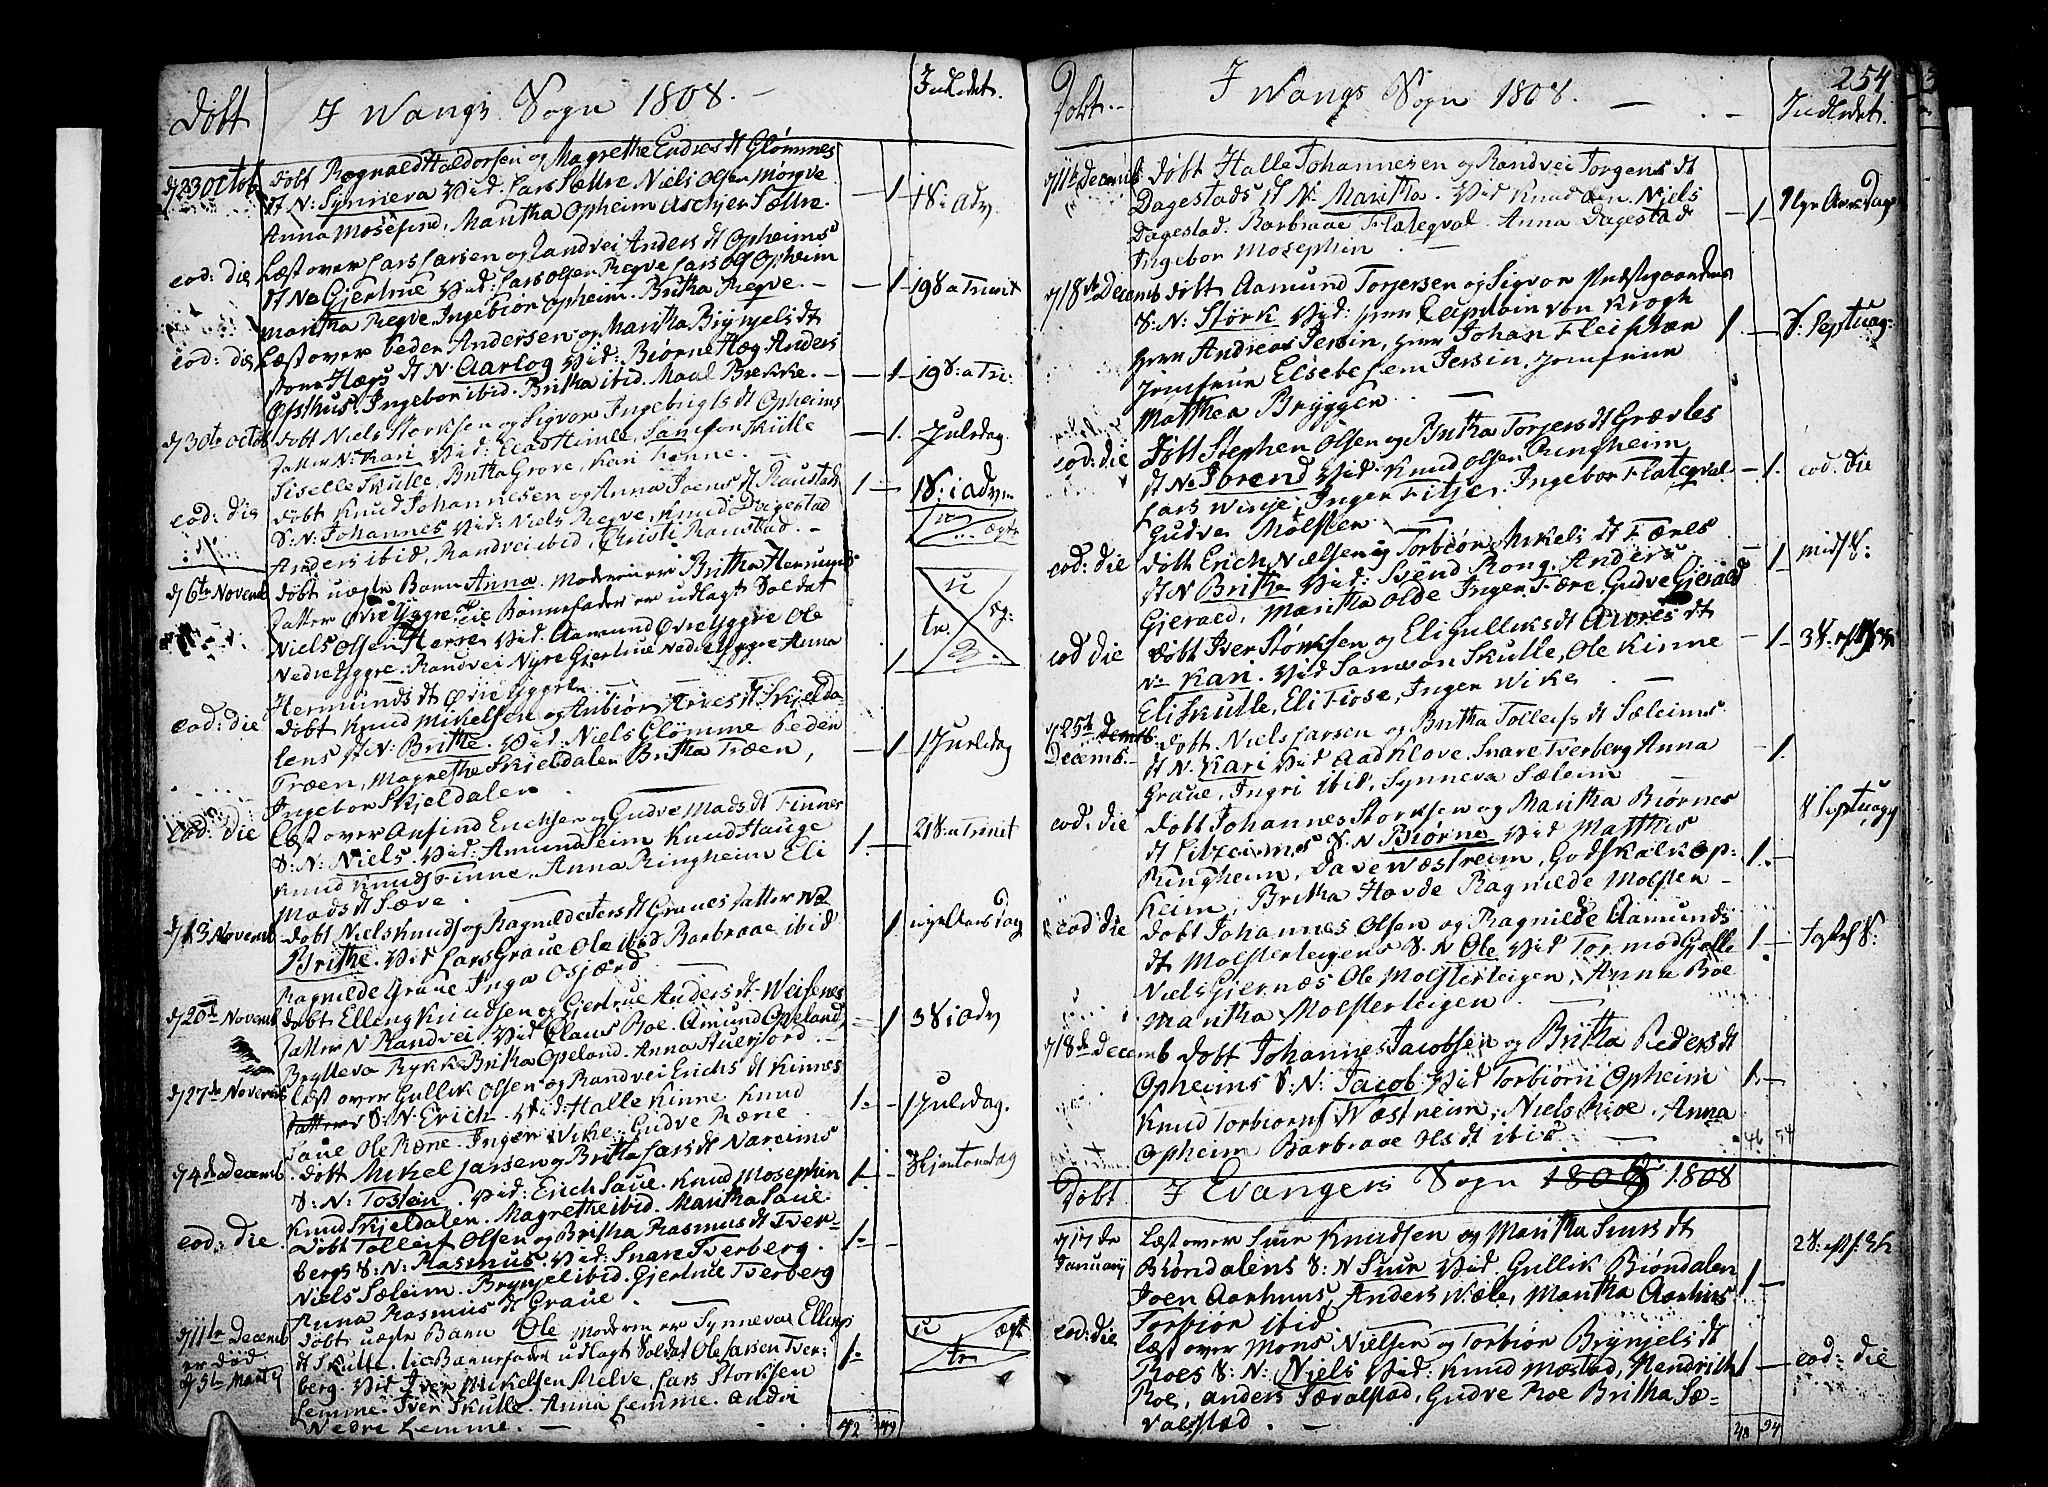 Døbt
I Wangs Sogn 1808. –
Indledet.
d 23 Octob
Døbt Rognald Haldorsen og Magrethe Endresdt Glømmes
dt N: Synneva Vid: Lars Sættre Niels Olsen Mørqve
Anna Mosefind, Maritha Opheim Aschjer Sættre.
– 1
1 S: i Adv.
eod: die
Læst over Lars Larsen og Randvei Anders dt Opheims
dt No Gjertrue Vid: Lars Olsen Reqve Lars Ols Opheim
Maritha Reqve Ingebiør Opheim. Britha Reqve. –
– 1
19 S a Trinit
eod: die
Læst over Peder Andersen og Maritha Brynjels dt
Hægs dt N. Aarlog Vid: Biørne Hæg Anders
Øfsthus. Ingebor ibid. Britha ibid. Maal Brekke. –
– 1
19 S: a Tri:
d 30te Octob
Døbt Niels Storksen og Sigvor Ingebrigts dt Opheims
Datter N: Kari Vid: Elad Himle, Samson Skulle
Giselle Skulle, Britha Grove, Kari Lønne. –
– 1.
Juledag.
eod: die
Døbt Knud Johannesen og Anna Joens dt Raustads
S: N: Johannes Vid: Niels Reqve, Knud Dagestad
Anders ibid, Randvei ibid, Christi Raustad. –
1 –
1 S: i Adv
d 6te Novemb
Døbt uægte Barn Anna. Moderen er Britha Hermunds
Datter Øvre Yggre Barnefader er udlagt Soldat
Niels Olsen Herre Vid. Aamund Øvre Yggre Ole
Nedre Yggre. Randvei Nyre Gjertrue Nedre Yggre Anna
Hermunds dt Øvre Yggre.
1
eod: die
Døbt Knud Mikelsen og Anbiør Arves dt Skjelda-
lens dt N: Brithe. Vid: Niels Glømme Peder
Træen, Magrethe Skjeldalen Britha Træen,
Ingebor Skjeldalen
– 1
1 Juledag
eod: die
Læst over Anfind Erichsen og Gudve Mads dt Finnes
S: N: Niels. Vid: Amund Seim Knud Hauge
Knud Knuds Finne, Anna Ringheim Eli
Mads dt Sæve.
1. –
21 S: a Trinit
d 13 Novemb
Døbt Niels Knuds og Ragnilde dt Graues Datter No
Brithe. Vid Lars Graue Ole ibid Barbraae ibid
Ragnilde Graue Inga Osjærd
1
d 20d Novemb
Døbt Elling Knudsen og Gjertrue Anders dt Weisenes
Datter N Randvei Vid Claus Roe. Amund Opeland,
Brytteva Rykke Britha Opeland. Anna
– 1
3 S i Adv
d 27de Novemb
Læst over Gullik Olsen og Randvei Erichs dt Kinnes
S: N: Erich. Vid: Halle Kinne Knud
Saue Ole Ræne. Inger Wike, Gudve Ræne
1. –
1 Juledag.
d 4de Decemb
Døbt Mikel Larsen og Britha Lars dt Nareims
S: N: Tosten. Vid: Erich Saue. Knud Mosephin
Knud Skjeldalen. Magrethe ibid. Maritha Saue
1. –
Skjertorsdag
eod: die
Døbt Tolleif Olsen og Britha Rasmus dt Tver-
bergs S: N: Rasmus. Vid: Snare Tverberg.
Niels Sæleim. Brynjel ibid. Gjertrue Tverberg
Anna Rasmus dt Graue.
1. –
d 11te Decemb
er død
d 5te Marty
Døbt uægte Barn Ole Moderen er Synneva Ellings
dt Skulle. Barnefader udlagt Soldat Ole Larsen Tver-
berg. Vid Iver Mikelsen Melve, Lars Storksen
Lemme. Iver Skulle. Anna Lemme. Andvi
Nedre Lemme. –
1. –
42 49
Døbt. –
I Wangs Sogn 1808. –
254
Indledet.
d 11te Decemb
Døbt Halle Johannesen og Randvei Torgers dt
Dagestads dt N: Maritha. Vid Knud Niels
Dagestad. Barbraae Flateqval. Anna Dagestad
Ingebor Mosephin
– 1
d 18de Decemb
Døbt Aamund Torjersen og Sigvor Præstegaardens
S: N: Størk Vid: Herr Captain von Krogh
Herr Andreas Jersin, Herr Johan Fleischer
Jomfrue Elsebe Lem Jersin. Jomfrue
Matthea Bryggen –
1. –
S: Septuag:
eod: die
Døbt Stephen Olsen og Britha Torjers dt Grævles
dt No Jorend Vid. Knud Olsen Ringheim
Lars Winje, Inger Fitje. Ingebor Flateqval
Gudve Mølster.
– 1.
eod: die
eod: die
Døbt Erich Nielsen og Torbiør Mikels dt Færes
dt N Brithe Vid: Svend Rong, Anders
Gjerald, Maritha Olde Inger Fære. Gudve Gjerald
– 1
midf S:
eod die
Døbt Iver Størksen og Eli Gulliks dt Avres dt
No Kari. Vid Samson Skulle, Ole Kinne
Eli Skulle, Eli Fiose, Inger Wike –
– 1 –
d 25de
Decemb. –
Døbt Niels Larsen og Britha Tolleifs dt Sæleims
dt N. Kari Vid Aad Klove. Snare Tverberg Anna
Graue, Ingri ibid, Synneva Sæleim –
1.
eod: die
Døbt Johannes Storksen og Maritha Biørnes
dt S N Biørne Vid Matthis
Ringheim, Dave Wæstreim, Godskalk Op-
heim, Britha Hovde Ragnilde Molster –
1. –
S Septuag
eod die
Døbt Johannes Olsen og Ragnilde Aamunds
dt Molsterteigens S. N Ole. Vid Tormod Gjelle
Niels Giernæs Ole Molsterteigen, Anna Roe
Maritha Molsterteigen.
1 –
Fastel S:
d 18de Decemb
Døbt Johannes Jacobsen og Britha Peders dt
Opheims S: N: Jacob. Vid Torbiørn Opheim
Knud Torbiorns Wæstreim, Niels Roe, Anna
Opheim Barbraae Ols dt ibid –
1. –
46 54
Døbt
I Evangers Sogn 1808
d 17 de
Januarij
Læst over Siur Knudsen og Maritha Siurs dt
Biøndalens S: N Siur Vid. Gullik Biøndalen
Joen Aarhuus, Anders Wæle, Maritha Aarhus
Torbiør ibid
1 –
eod: die
Læst over Mons Nielsen og Torbiør Brynjels dt
Roes S: N: Niels Vid: Knud Mæstad, Hendrich
Roe, Anders Sævalstad, Gudve Roe Britha Sæ-
valstad. –
1 –
eod: die